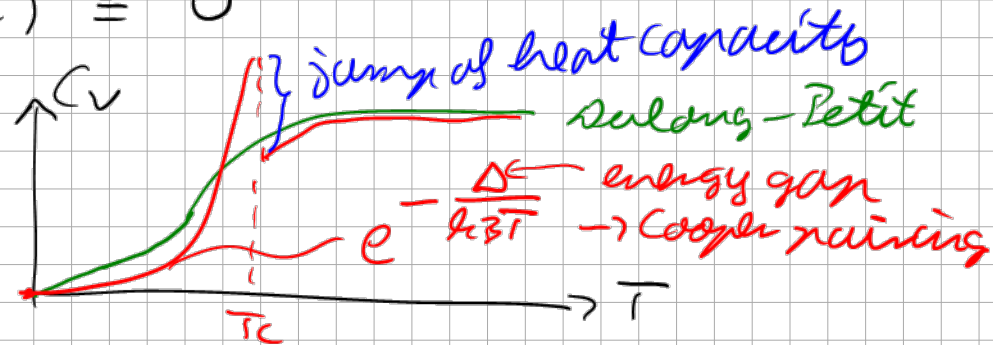 ) = 0
jump of heat capacity
Cv
Dulong-Petit
e^-Δ/kBT ← energy gap
→ Cooper pairing
→ T
Tc